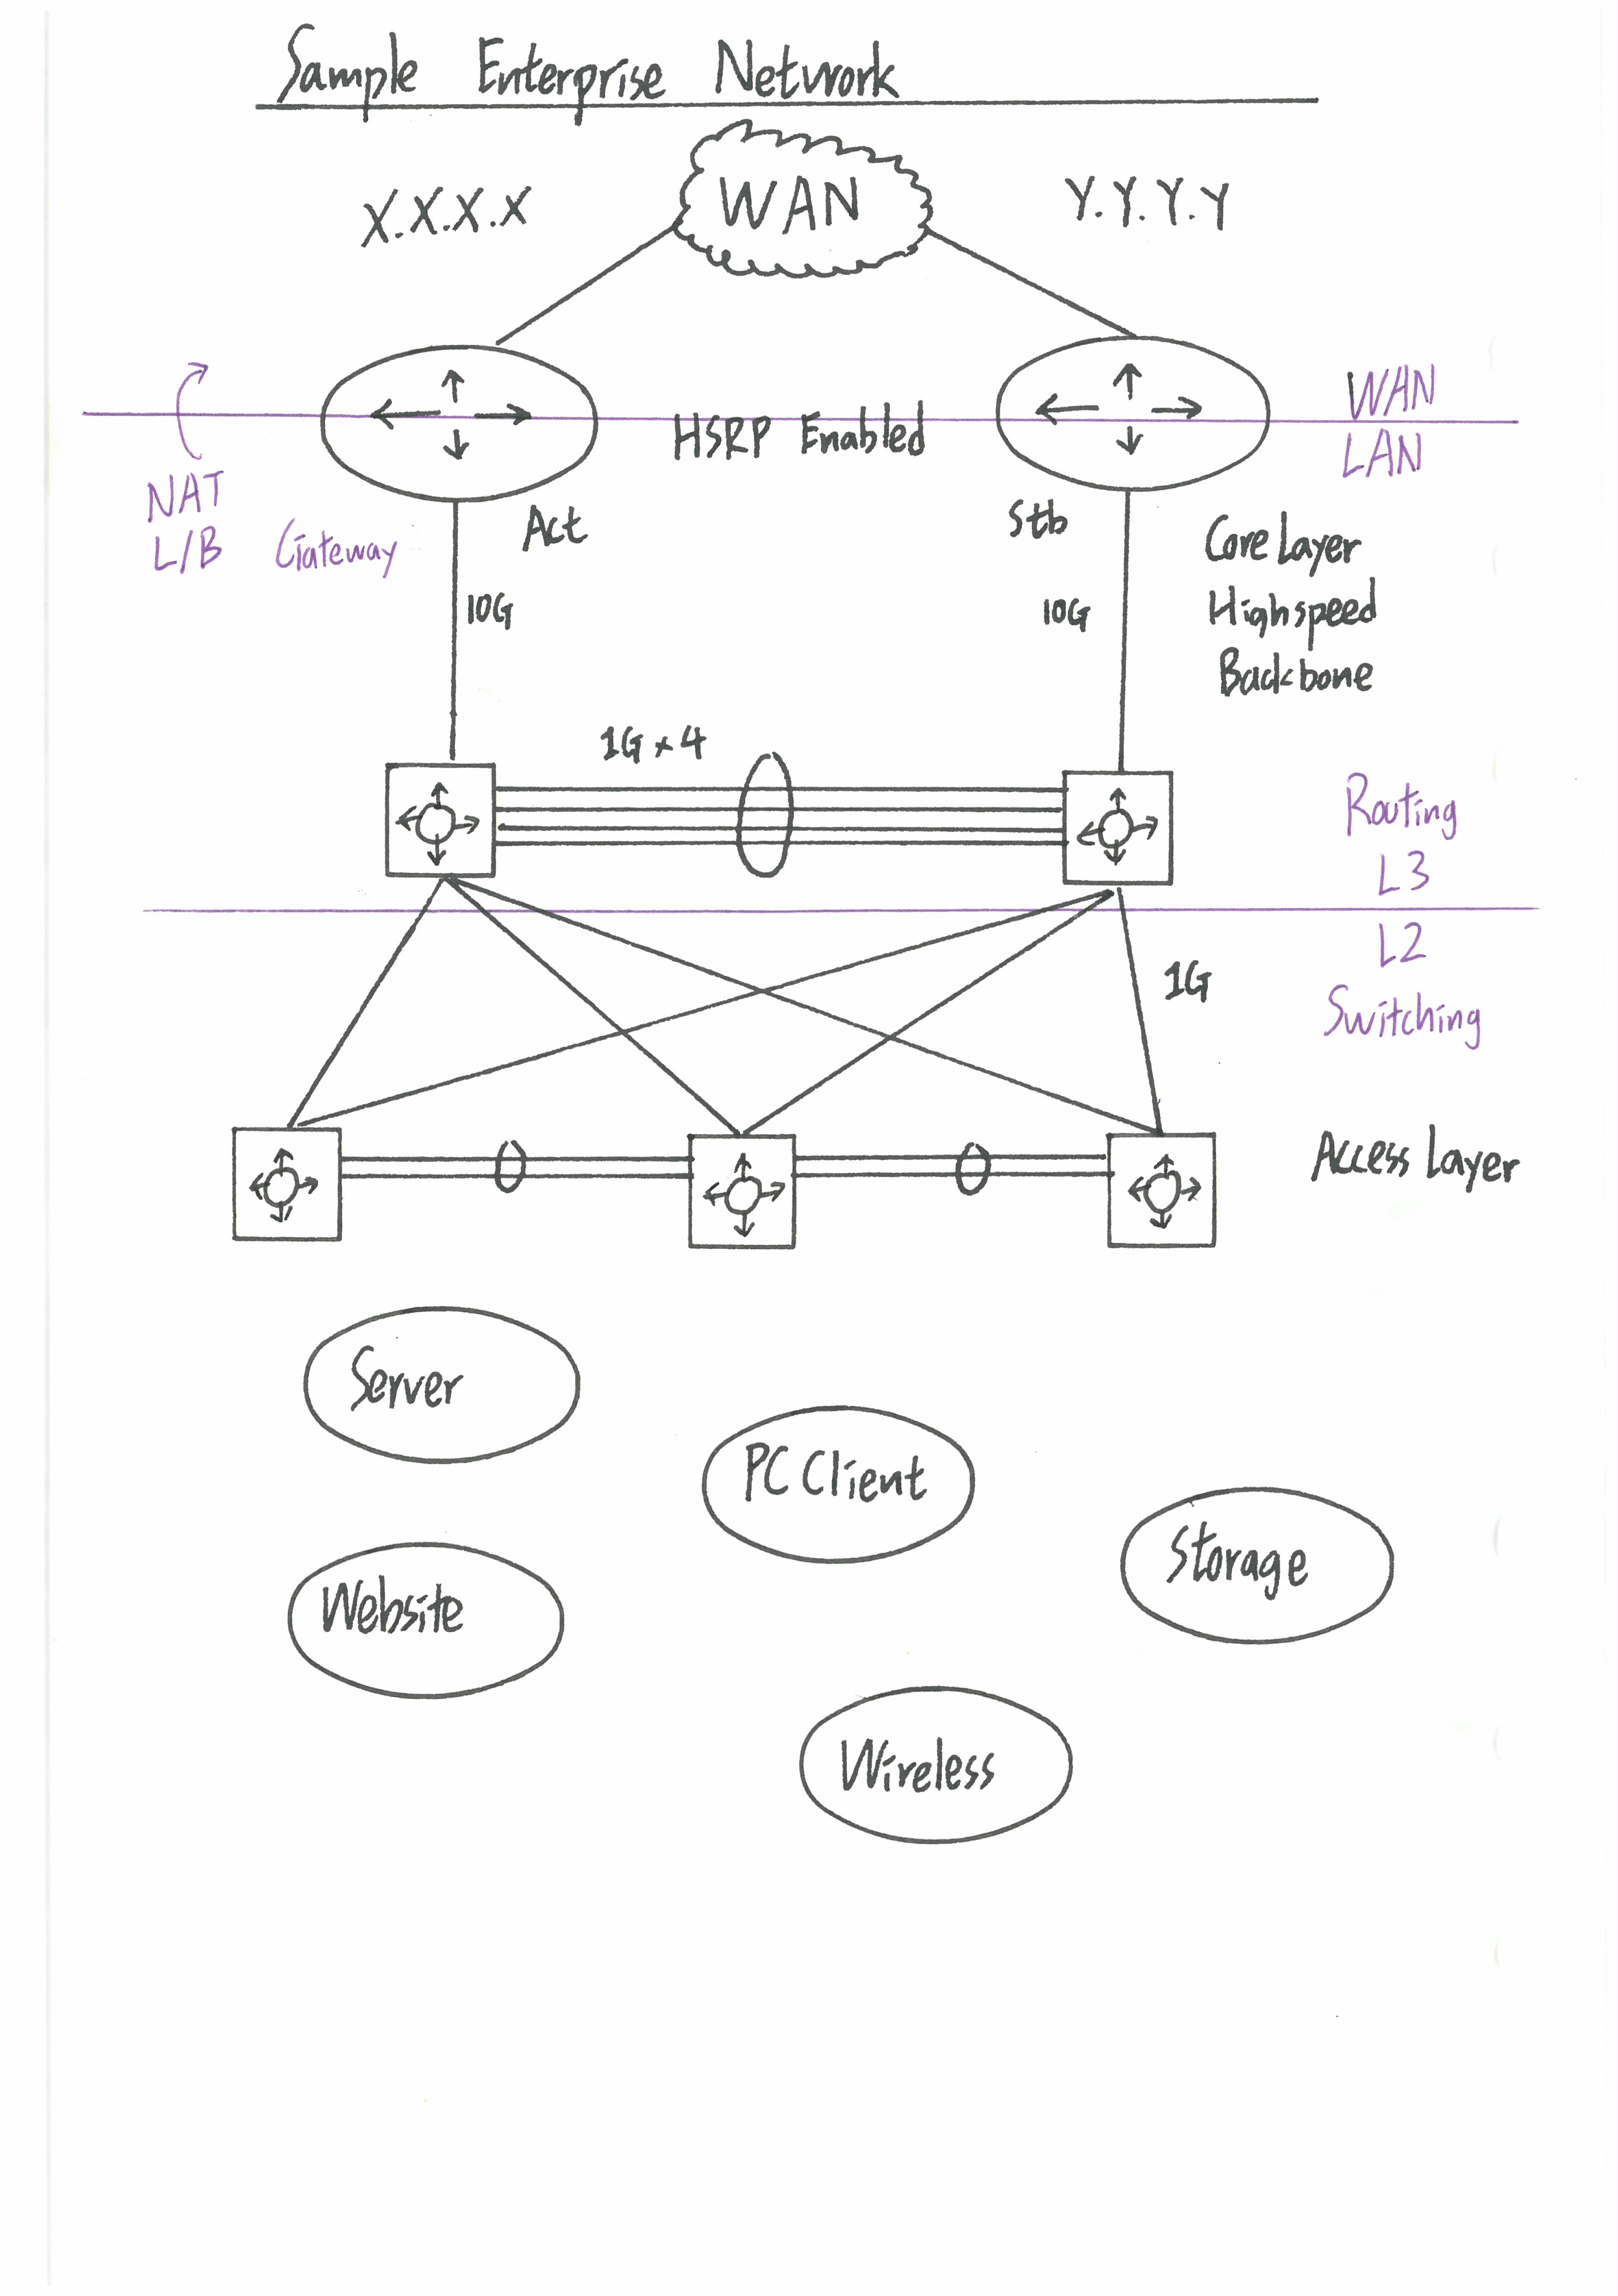 Sample Enterprise Network
WAN
X.X.X.X
Y.Y.Y.Y
WAN
HSRP Enabled
LAN
NAT
L/B Gateway
Act
Stb
Core Layer
Highspeed
Backbone
10G
10G
1G x 4
Routing
L3
L2
Switching
1G
Access Layer
Server
PC Client
Storage
Website
Wireless